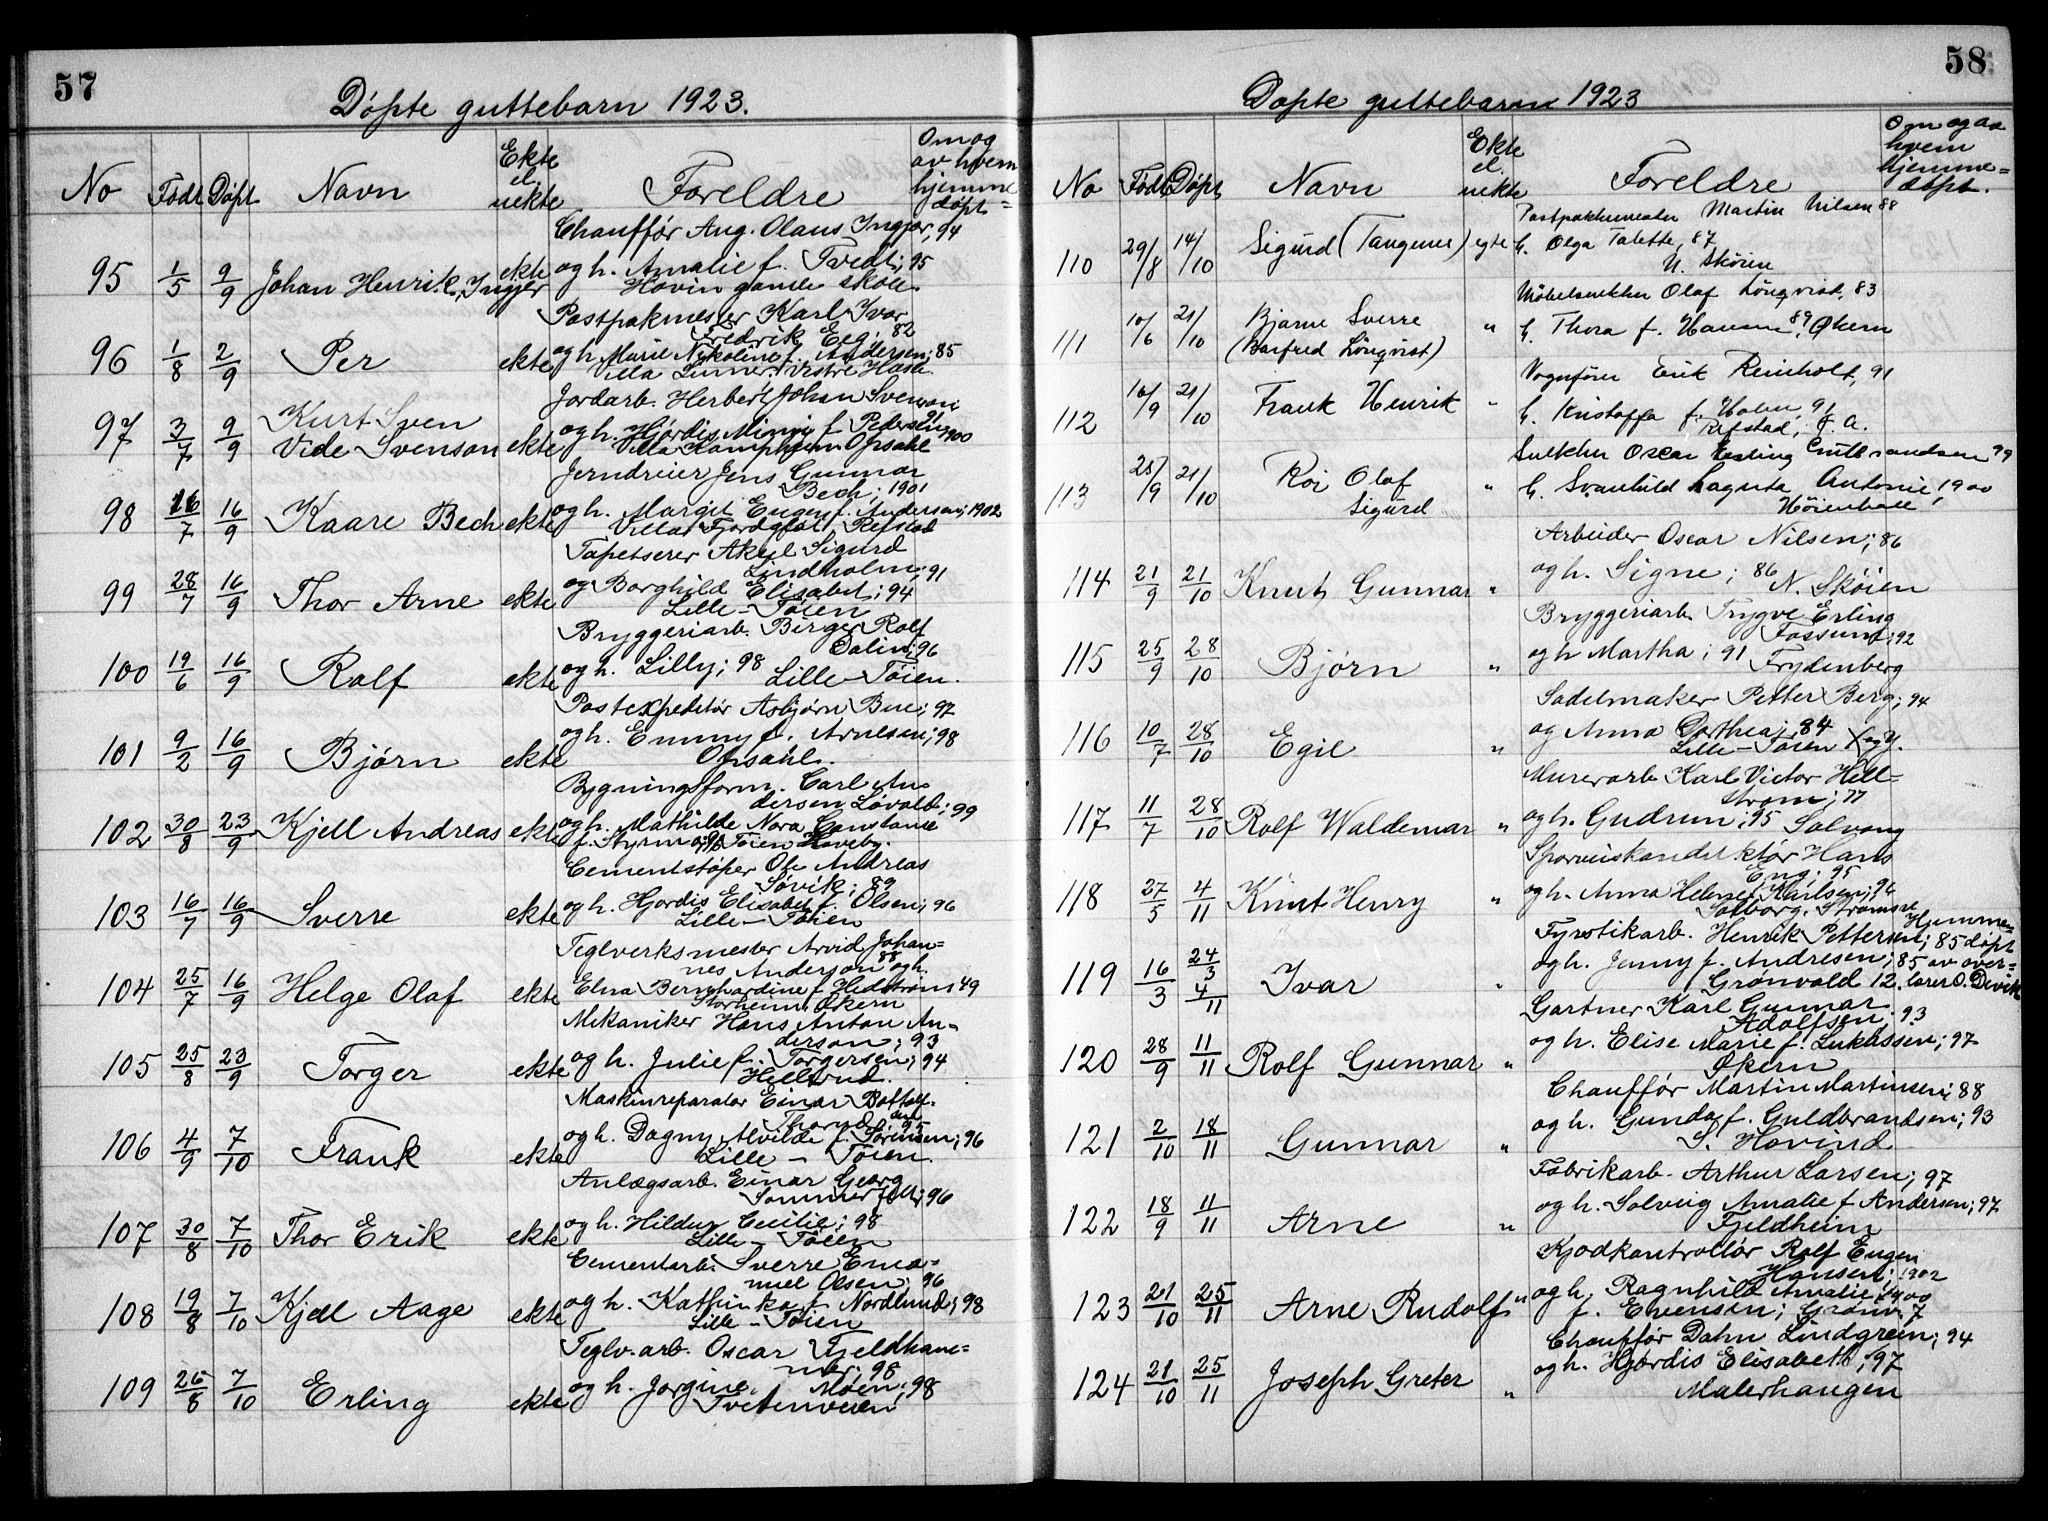 57
Døpte guttebarn 1923.
No Født Døpt Navn Ekte el. uekte Foreldre Om og av hvem hjemme=døpt
Chauffør Aug. Olaus Ingjer, 94
95 1/5 9/9 Johan Henrik, Ingjer ekte og h. Amalie f. Tvedt; 95
Hovin gamle skole.
Postpakmester Karl Ivar
Fredrik Eeg; 82
96 1/8 2/9 Per ekte og h. Marie Nikoline f. Andersen; 85
Villa Vestre Hasle.
Jordarb. Herbert Johan Svenson
97 3/7 9/9 Kurt Sven
Vide Svenson ekte og h. Hjördis f. Pedersen 1900
Villa Opsahl
Jerndreier Jens Gunnar
Bech; 1901
98 16/7 16/9 Kaare Bech ekte og h. Margit Eugen f. Anderson; 1902
Villa Fjordgløt, Refstad
Tapetserer Aksel Sigurd
Lindholm; 91
99 28/7 16/9 Thor Arne ekte og Borghild Elisabet; 94
Lille-Tøien
Bryggeriarb. Birger Rolf
Dalin; 96
100 19/6 16/9 Rolf ekte og h. Lilly; 98 Lille-Tøien.
Postexpeditør Asbjørn Bue; 97
101 9/2 16/9 Bjørn ekte og h. Emmy f. Arnesen; 98
Opsahl.
Bygningsform. Carl An-
dersen Løvold; 99
102 30/8 23/9 Kjell Andreas ekte og h. Mathilde Nora Constance
f. Tøien Hoveby.
Cementstøper Ole Andreas
Søvik; 89
103 16/7 16/9 Sverre ekte og h. Hjordis Elisabet f. Olsen; 96
Lille-Tøien
Teglverksmester Arvid Johan=
nes Anderson 88 og h.
104 25/7 16/9 Helge Olaf ekte Elna Bernhardine f. Hedstrøm 49
Storheim, Økern
Mekaniker Hans Anton An-
derson; 93
105 25/8 23/9 Torger ekte og h. Julie f. Torgersen; 94
Hellerud.
Maskinreparatør Einar Bottolf-
Thorud; 95
106 4/9 7/10 Frank ekte og h. Dagny Alvilde f. Sørensen; 96
Lille-Tøien.
Anlægsarb. Einar Georg
Sommerfelt; 96
107 30/8 7/10 Thor Erik ekte og h. Hildur Cecilie; 98
Lille-Tøien
Cementarb. Sverre Ema=
nuel Olsen; 96
108 19/8 7/10 Kjell Aage ekte og h. Kathinka f. Nordlund; 98
Lille-Tøien
Teglv.arb. Oscar Fjeldham=
mer; 98
109 26/8 7/10 Erling ekte og h. Jorgine Moen; 98
Tvetenveien
58
Døpte guttebarn 1923
No Født Døpt Navn Ekte el. uekte Foreldre Om og av hvem hjemme=døpt.
Postpakkmester Martin Nilsen 88
110 29/8 14/10 Sigurd (Tangener) egte h. Olga Talette, 87
N. Skøien
Möbelsnekker Olaf Lönqvist, 83
111 10/6 21/10 Bjarne Sverre
(Barfred Lönqvist) " h. Thora f. Hansen 89, Økern
Vognfører Erik Reinholt, 91
112 16/9 21/10 Frank Henrik " h. Kristoffa f. Holm, 91
Refstad, Ø. A.
Snekker Oscar Erling Gulbrandsen 99
113 28/9 21/10 Roi Olaf
Sigurd " h. Svanhild Lagerta Antonie, 1900
Høienhall
Arbeider Oscar Nilsen; 86
114 21/9 21/10 Knut Gunnar " og h. Signe; 86 N. Skøien
Bryggeriarb. Trygve Erling
Fossum; 92
115 25/9 28/10 Bjørn " og h Martha; 91 Frydenberg
Sadelmaker Petter Berg; 94
116 10/7 28/10 Egil " og Anna Dorthea; 84
Lille-Tøien
Murerarb. Karl Victor Hell=
strøm; 77
117 11/7 28/10 Rolf Waldemar " og h. Gudrun; 95 Solvang
Sporveiskonduktør Hans
Eng; 95
118 27/5 4/11 Knut Henry " og h. Anna Helene f. Karlsen; 96
Solborg, Strømsv.
Fyrstikarb. Henrik Pettersen; 85 Hjemme-døpt
119 16/3 24/3 4/11 Ivar " og h. Jenny f. Andresen; 85 av over=
Grønvold 12. lærer O. Devik
Gartner Karl Gunnar
Adolfsen 93
120 28/9 11/11 Rolf Gunnar " og h. Elise Marie f. Lukassen; 97
Økern
Chauffør Martin Martinsen; 88
121 2/10 18/11 Gunnar " og h. Gunda f. Guldbrandsen; 93
S. Hovind
Fabrikarb. Arthur Larsen; 97
122 18/9 11/11 Arne " og h. Solveig Amalie f. Andersen; 97
Fjeldheim
Kjødkontrollør Rolf Eugen
Hansen; 1902
123 21/10 25/11 Arne Rudolf " og h. Ragnhild Amalie 1900
f. Evensen; Grønv. 7
Chauffør Dahn Lindgren; 94
124 21/10 25/11 Joseph Greter " og h. Hjørdis Elisabeth; 97
Malerhaugen